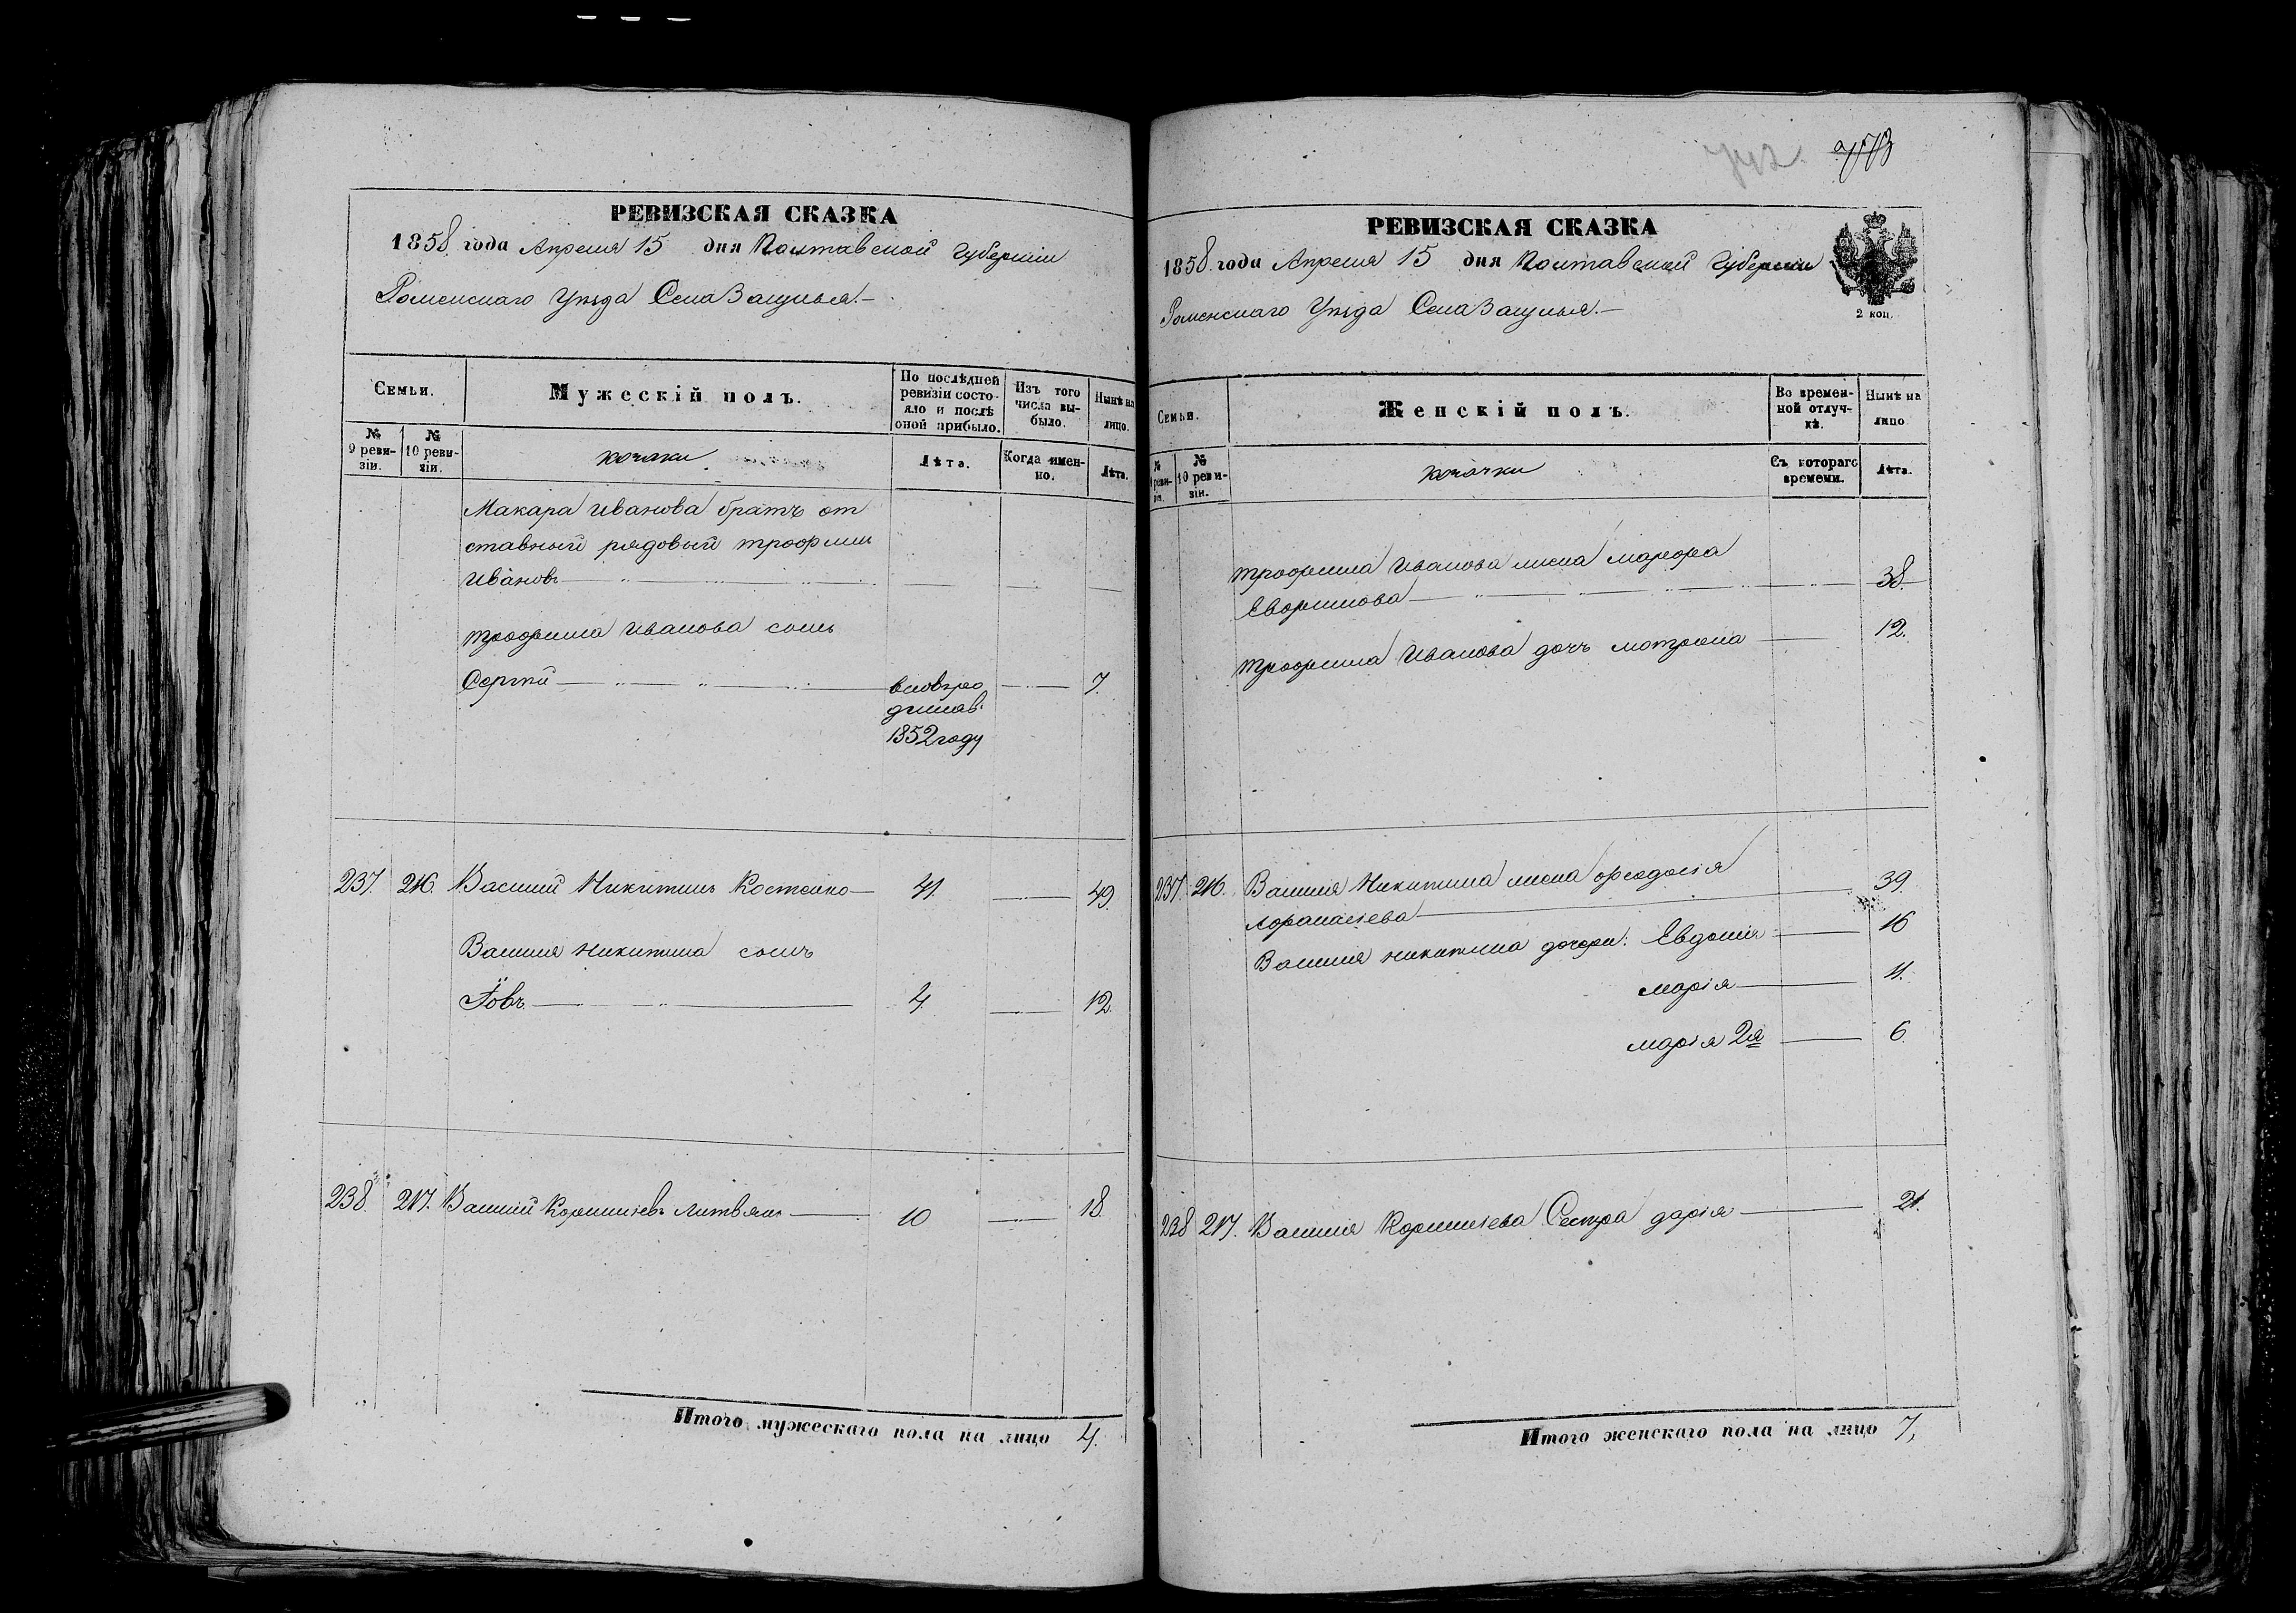 742. 773
РЕВИЗСКАЯ СКАЗКА
1858 года Апреля 15 дня Полтавской Губернии
Роменскаго Уѣзда Села
Семьи.
Мужескій полъ.
По послѣдней ревизіи состояло и послѣ оной прибыло.
Изъ того числа выбыло.
Нынѣ на лицо.
№ 9 ревизіи.
№ 10 ревизіи.
козаки
Лѣта.
Когда именно.
Лѣта.
Макара Иванова братъ от
ставный рядовый трофим
Ивановъ
трофима Иванова сынъ
Сергій 7.
вновь ро
дился в
1852 году
237. 216. Василий Никитинъ Костенко 41. 49.
Василия Никитина сынъ
Іовъ 4. 12.
238. 217. Василий Корнилиевъ Литвинъ 10 18.
Итого мужескаго пола на лицо 4.
РЕВИЗСКАЯ СКАЗКА
1858 года Апреля 15 дня Полтавской Губернии
Роменскаго Уѣзда Села
2 коп.
Семьи.
Женскій полъ.
Во временной отлучкѣ.
Нынѣ на лицо
№ 9 ревизіи.
№ 10 ревизіи.
козачки
Съ котораго времени.
Лѣта.
трофима Иванова жена марфа
Ефимова 38.
трофима Иванова дочь мотрона 12.
237. 216. Василия Никитина жена феодосія
Афанасіева 39.
Василия никитина дочери: Евдокія 16
марія 11.
марія 2я 6.
238 217. Василия Корнилиева Сестра дарія 21.
Итого женскаго пола на лицо 7,